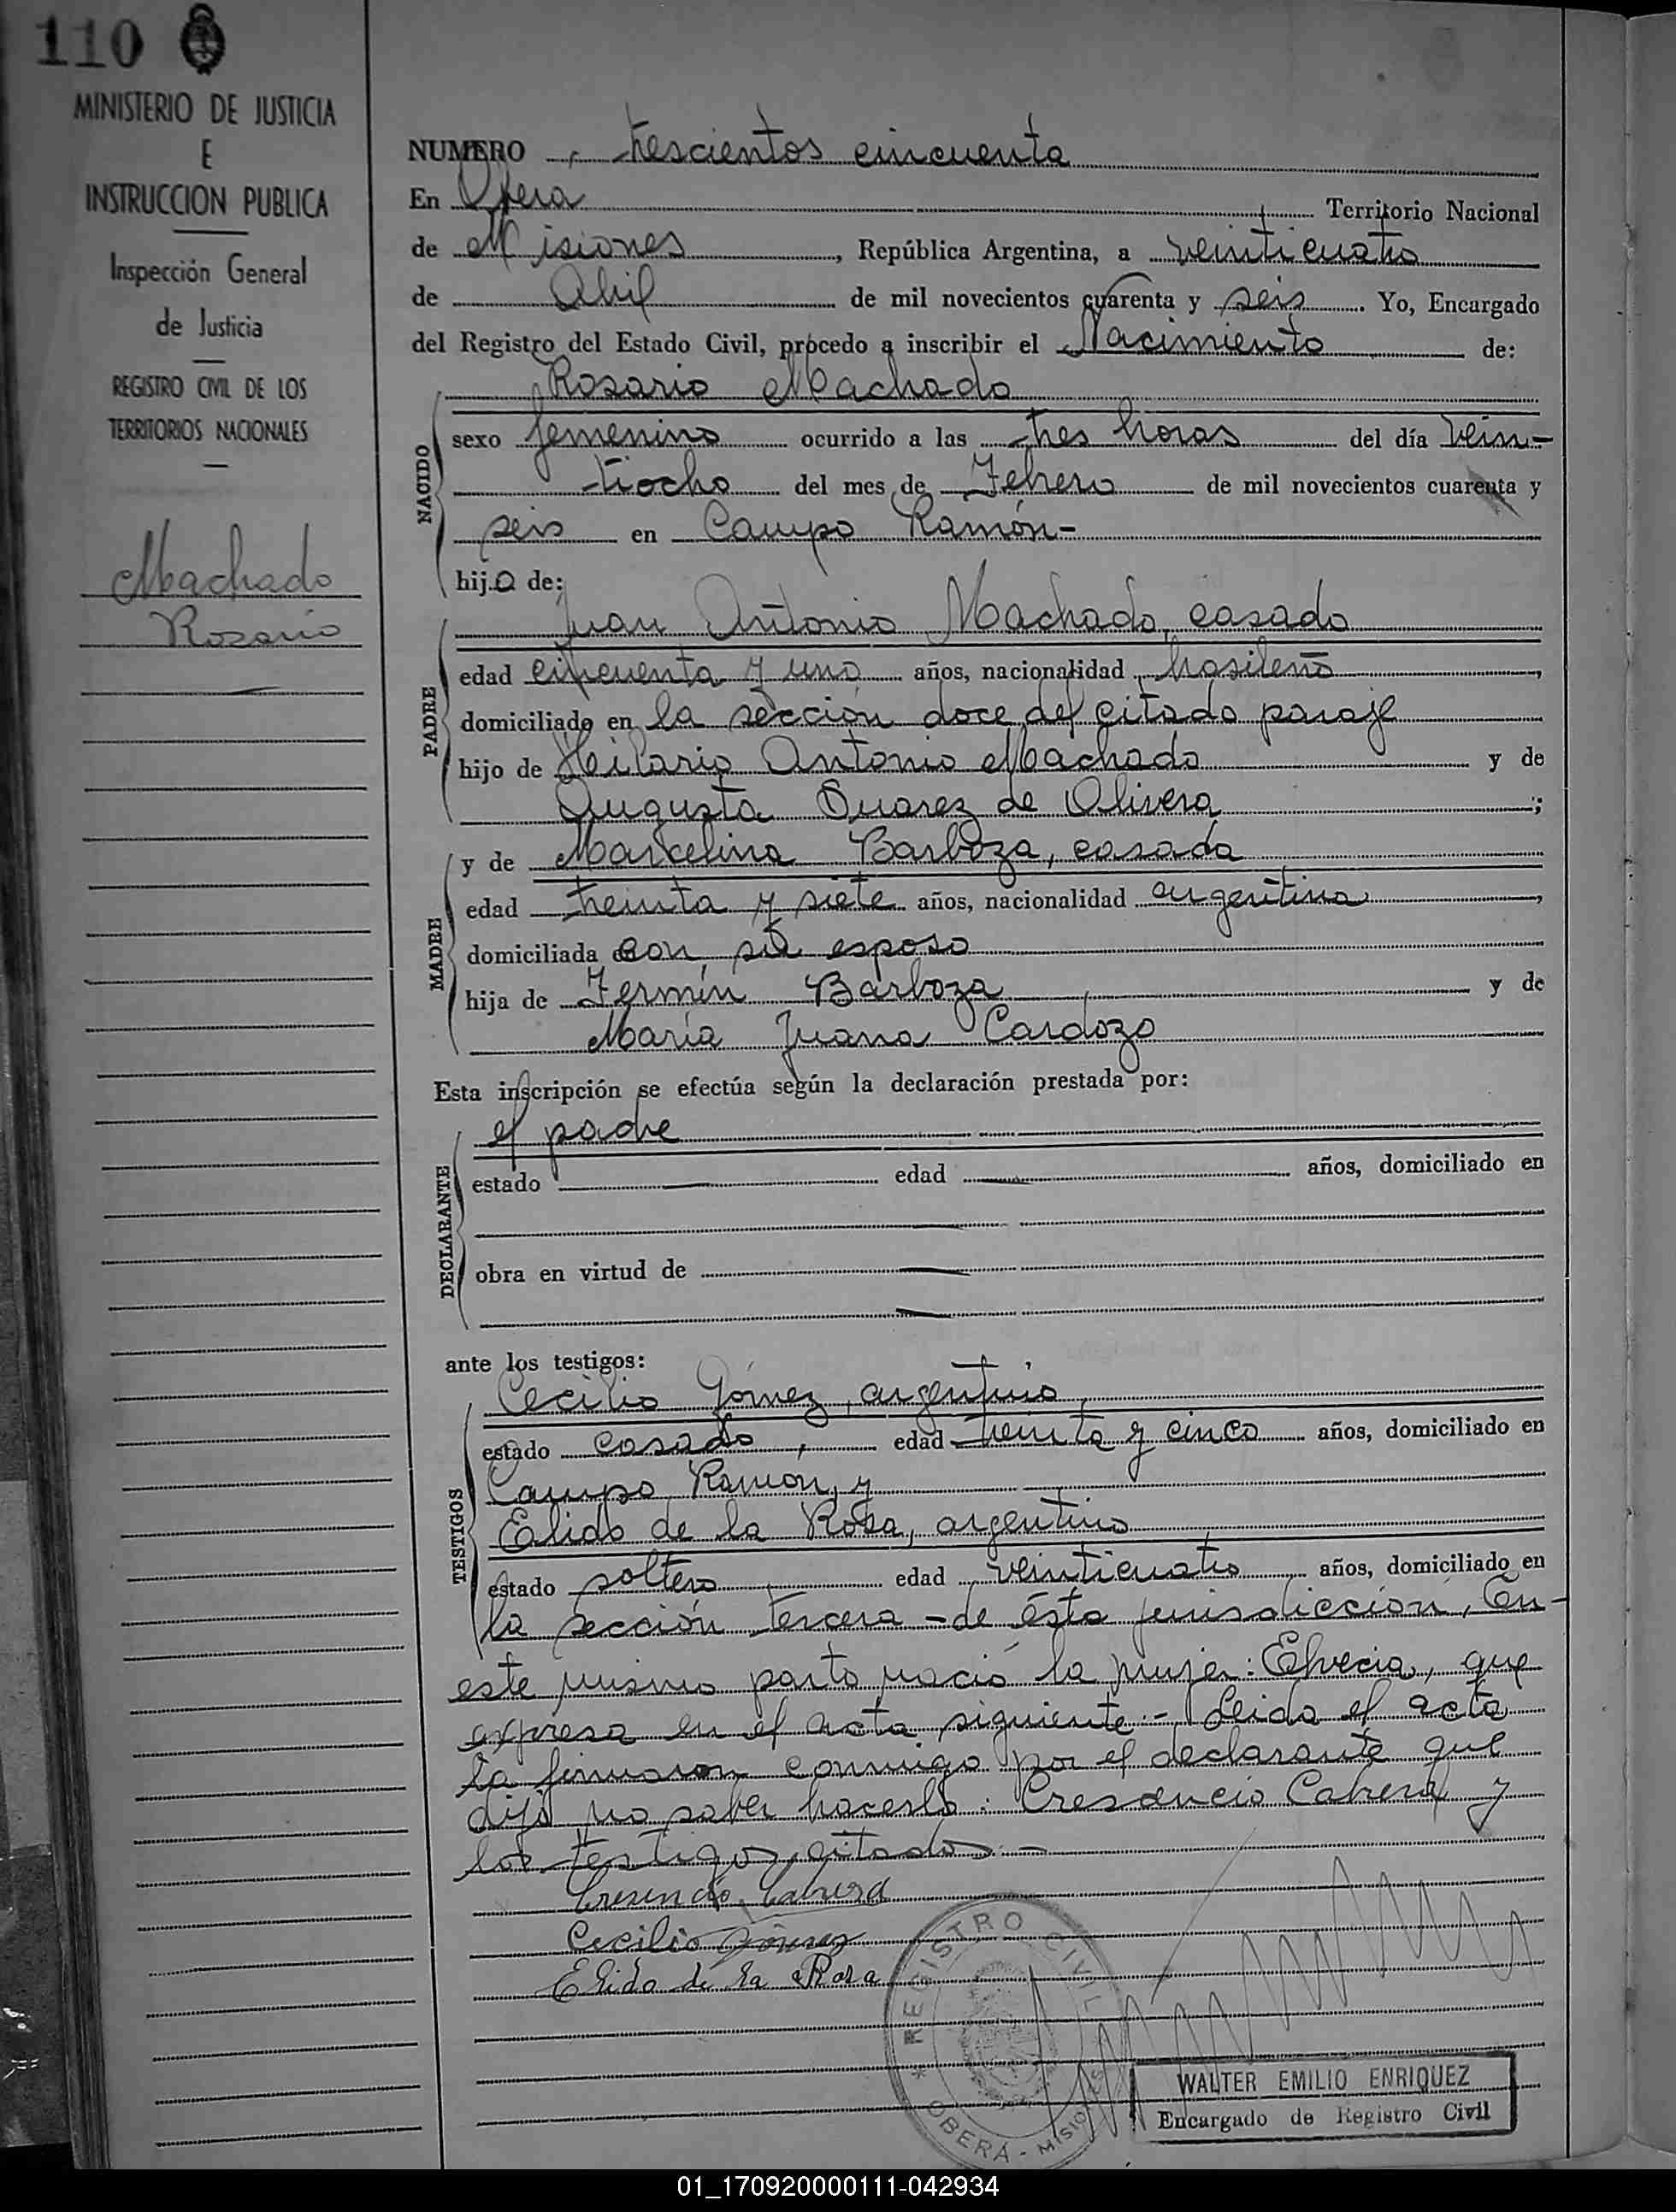 110
MINISTERIO DE JUSTICIA
E
INSTRUCCION PUBLICA
Inspección General
de Justicia
REGISTRO CIVIL DE LOS
TERRITORIOS NACIONALES
Machado
Rosario
NUMERO trescientos cincuenta
En Obera Territorio Nacional
de Misiones, República Argentina, a veinticuatro
de Abril de mil novecientos cuarenta y seis. Yo, Encargado
del Registro del Estado Civil, procedo a inscribir el Nacimiento de:
Rosario Machado
NACIDO
sexo femenino ocurrido a las tres horas del día vein-
tiocho del mes de Febrero de mil novecientos cuarenta y
seis en Campo Ramón-
hija de:
Juan Antonio Machado, casado
PADRE
edad cincuenta y uno años, nacionalidad brasileño,
domiciliado en la sección doce del citado paraje
hijo de Hilario Antonio Machado y de
Augusta Suarez de Olivera;
y de Marcelina Barboza, casada
MADRE
edad treinta y siete años, nacionalidad argentina,
domiciliada con su esposo
hija de Fermín Barboza y de
María Juana Cardozo
Esta inscripción se efectúa según la declaración prestada por:
el padre
DECLARANTE
estado edad años, domiciliado en
obra en virtud de
ante los testigos:
Cecilio Gómez, argentino
TESTIGOS
estado casado, edad treinta y cinco años, domiciliado en
Campo Ramon, y
Elido de la Rosa, argentino
estado soltero edad veinticuatro años, domiciliado en
la sección tercera - de ésta jurisdicción, En-
este mismo parto nació la mujer: Elvecia, que
expresa en el acta siguiente.- Leida el acta
la firmaron conmigo por el declarante que
dijo no saber hacerlo: Cresencio Cabrera y
los testigos citados.-
Cresencio Cabrera
Cecilio Gómez
Elido de la Rosa
REGISTRO CIVIL
OBERÁ - MISIONES
WALTER EMILIO ENRIQUEZ
Encargado de Registro Civil
01_170920000111-042934